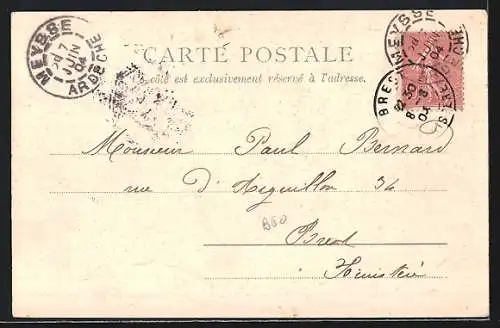 MEYSSE
7
JUIN
04
ARDECHE
MEYSSE
JUIN
04
CARTE POSTALE
Ce côté est exclusivement réservé à l'adresse.
BREST
8 30
8
04
Monsieur Paul Bernard
rue D'Aiguillon 34
B80
Brest
Finistère